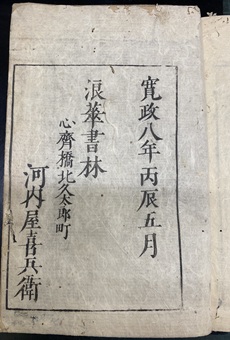 寛政八年丙辰五月
浪華書林
心齊橋北久太郎町
河内屋喜兵衛